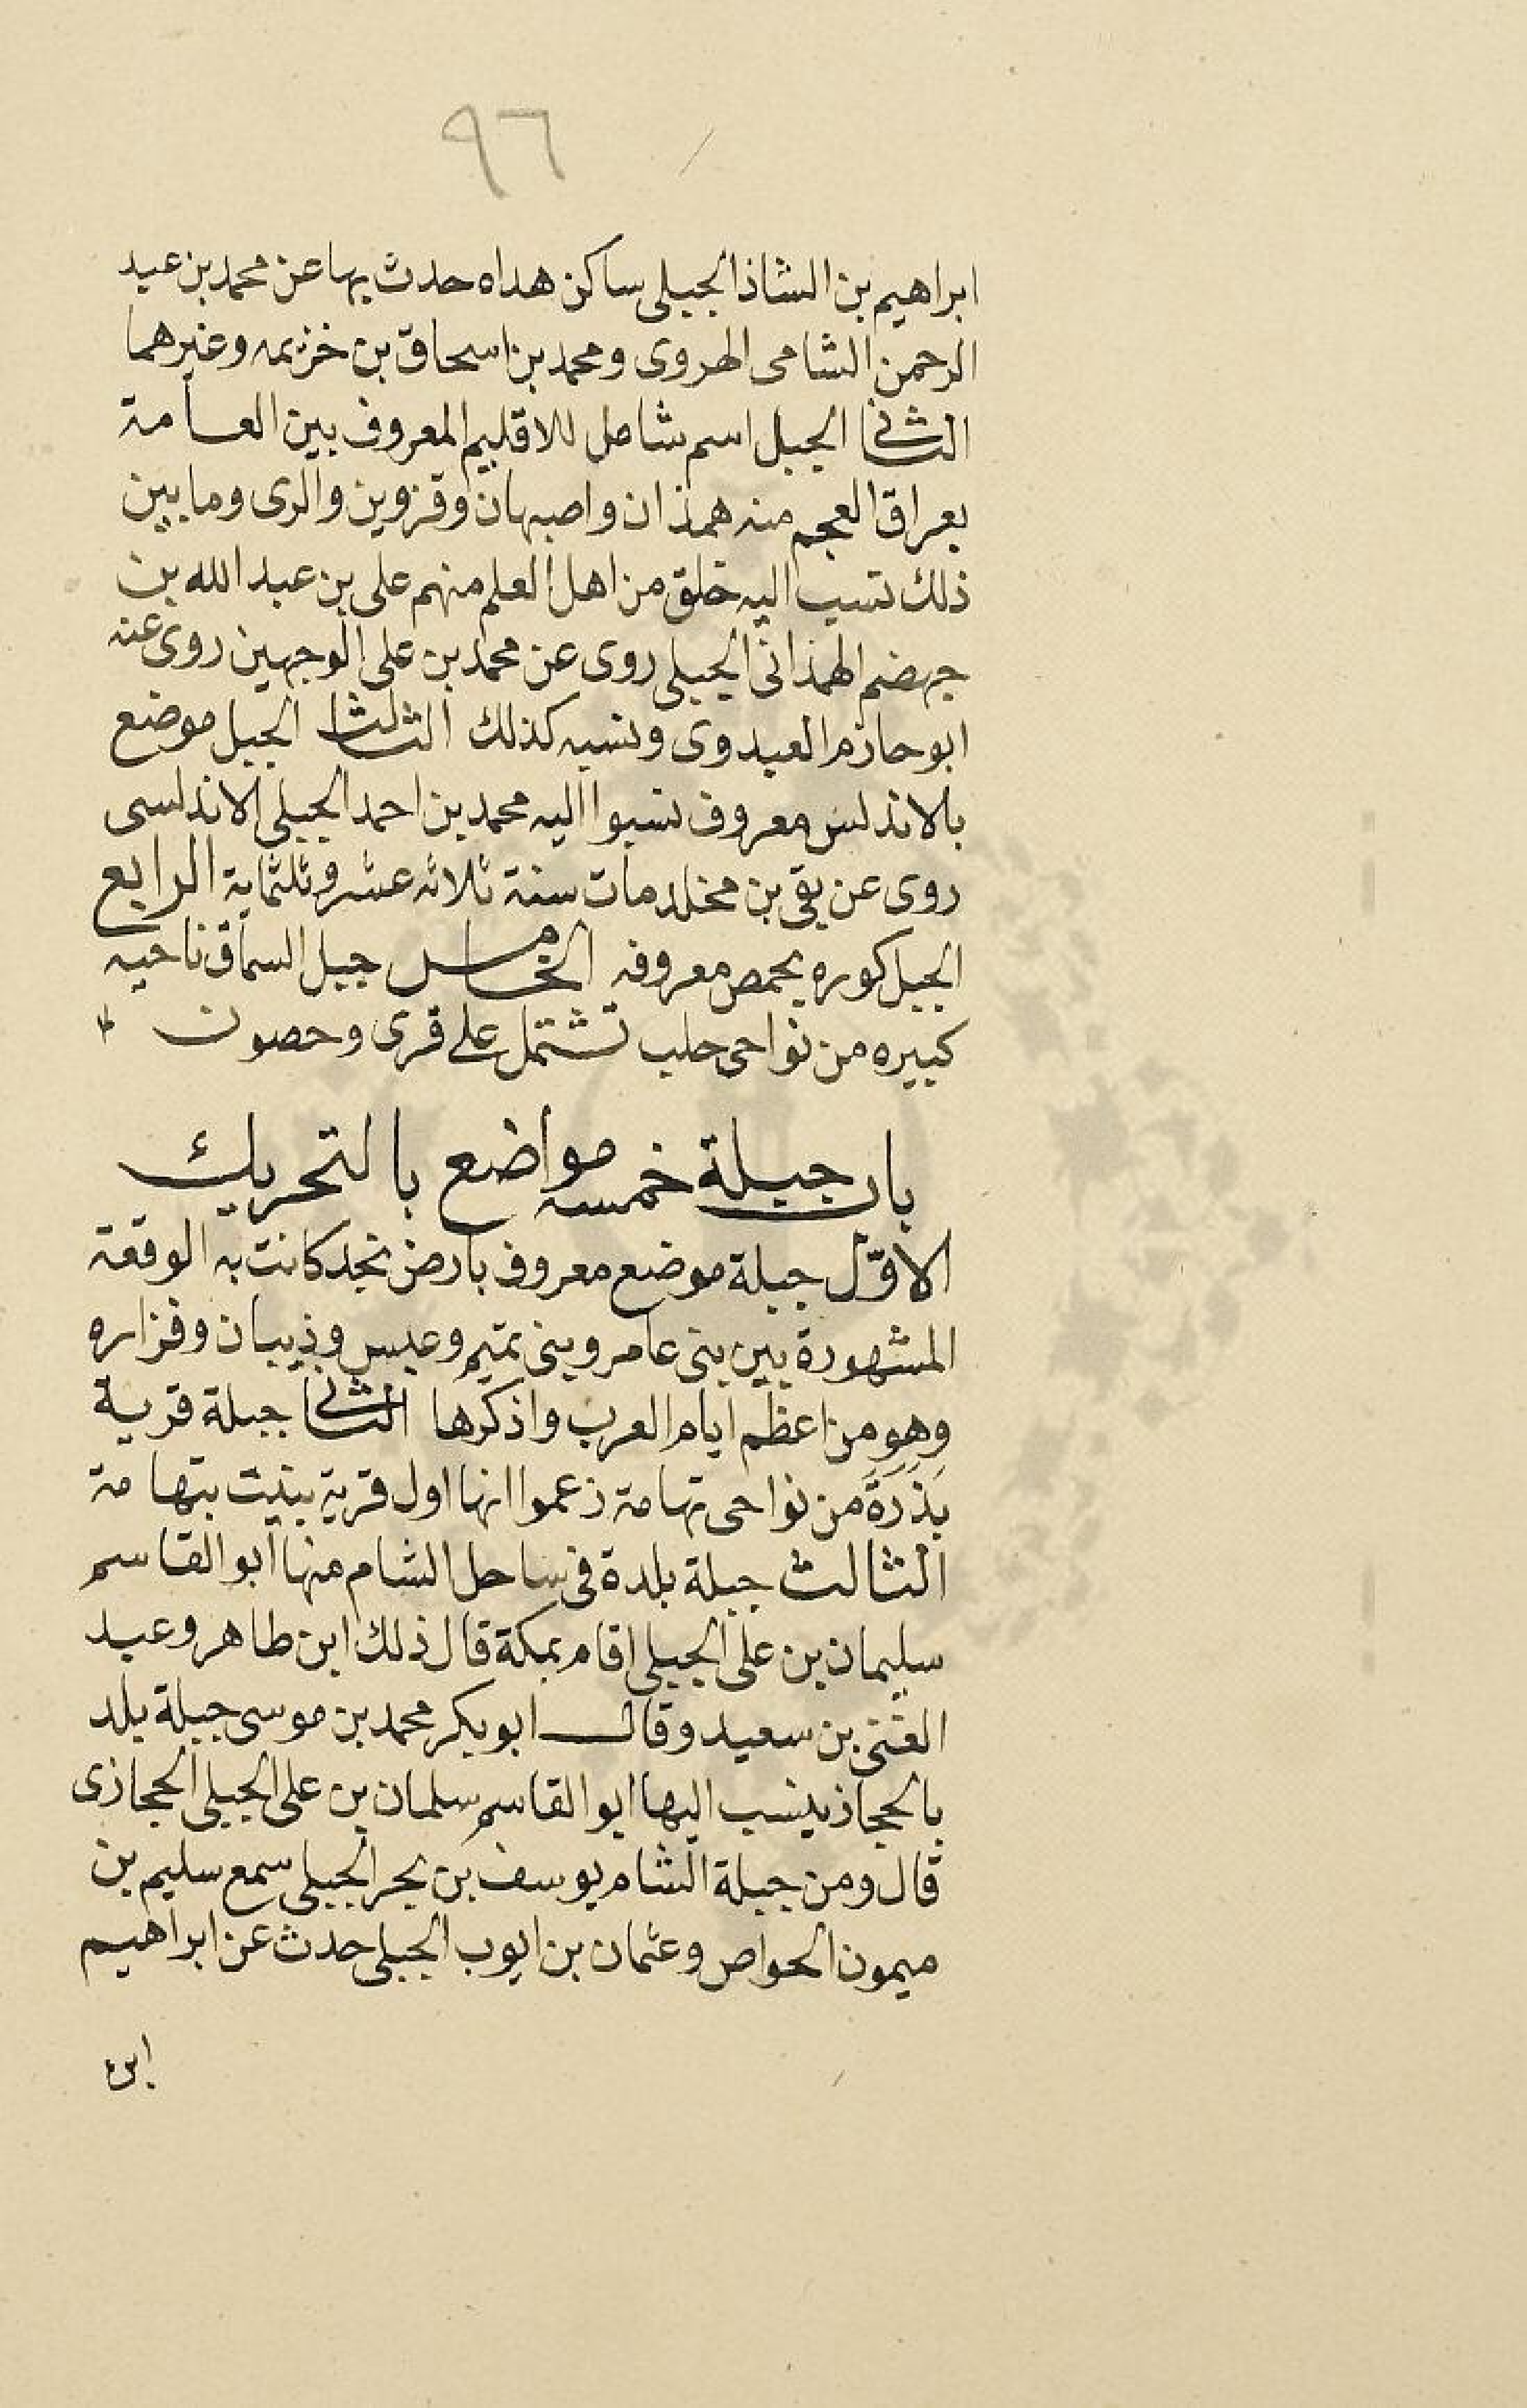 ٩٦
ابراهيم بن الشاذ الجبلى ساكن هداه حدث بها عن محمد بن عبد
الرحمن الشامى الهروى ومحمد بن اسحاق بن خزيمه وغيرهما
الثانى الجبل اسم شامل للاقليم المعروف بين العامة
بعراق العجم منه همذان واصبهان وقزوين والرى وما بين
ذلك نسب اليه خلق من اهل العلم منهم على بن عبد الله بن
جهضم الهمذانى الجبلى روى عن محمد بن على الوجيهين روى عنه
ابو حازم العبدوى ونسبه كذلك الثالث الجبل موضع
بالاندلس معروف نسبوا اليه محمد بن احمد الجبلى الاندلسى
روى عن بقى بن مخلد مات سنة ثلاثه عشر وثلثماية الرابع
الجبل كوره بحمص معروفه الخامس جبل السماق ناحيه
كبيره من نواحى حلب تشتمل على قرى وحصون
باب جبلة خمسه مواضع بالتحريك
الاوّل جبلة موضع معروف بارض نجد كانت به الوقعة
المشهورة بين بنى عامر وبنى تميم وعبس وذبيان وفزاره
وهو من اعظم ايام العرب واذكرها الثانى جبلة قرية
بَذَرَةَ من نواحى تهامة زعموا انها اول قرية بنيت بتهامة
الثالث جبلة بلدة فى ساحل الشام منها ابو القاسم
سليمان بن على الجبلى اقام بمكة قال ذلك ابن طاهر وعبد
الغنى بن سعيد وقال ابو بكر محمد بن موسى جبلة بلد
بالحجاز ينسب اليها ابو القاسم سلمان بن على الجبلى الحجازى
قال ومن جبلة الشام يوسف بن بحر الجبلى سمع سليم بن
ميمون الحواص وعثمان بن ايوب الجبلى حدث عن ابراهيم
ابن